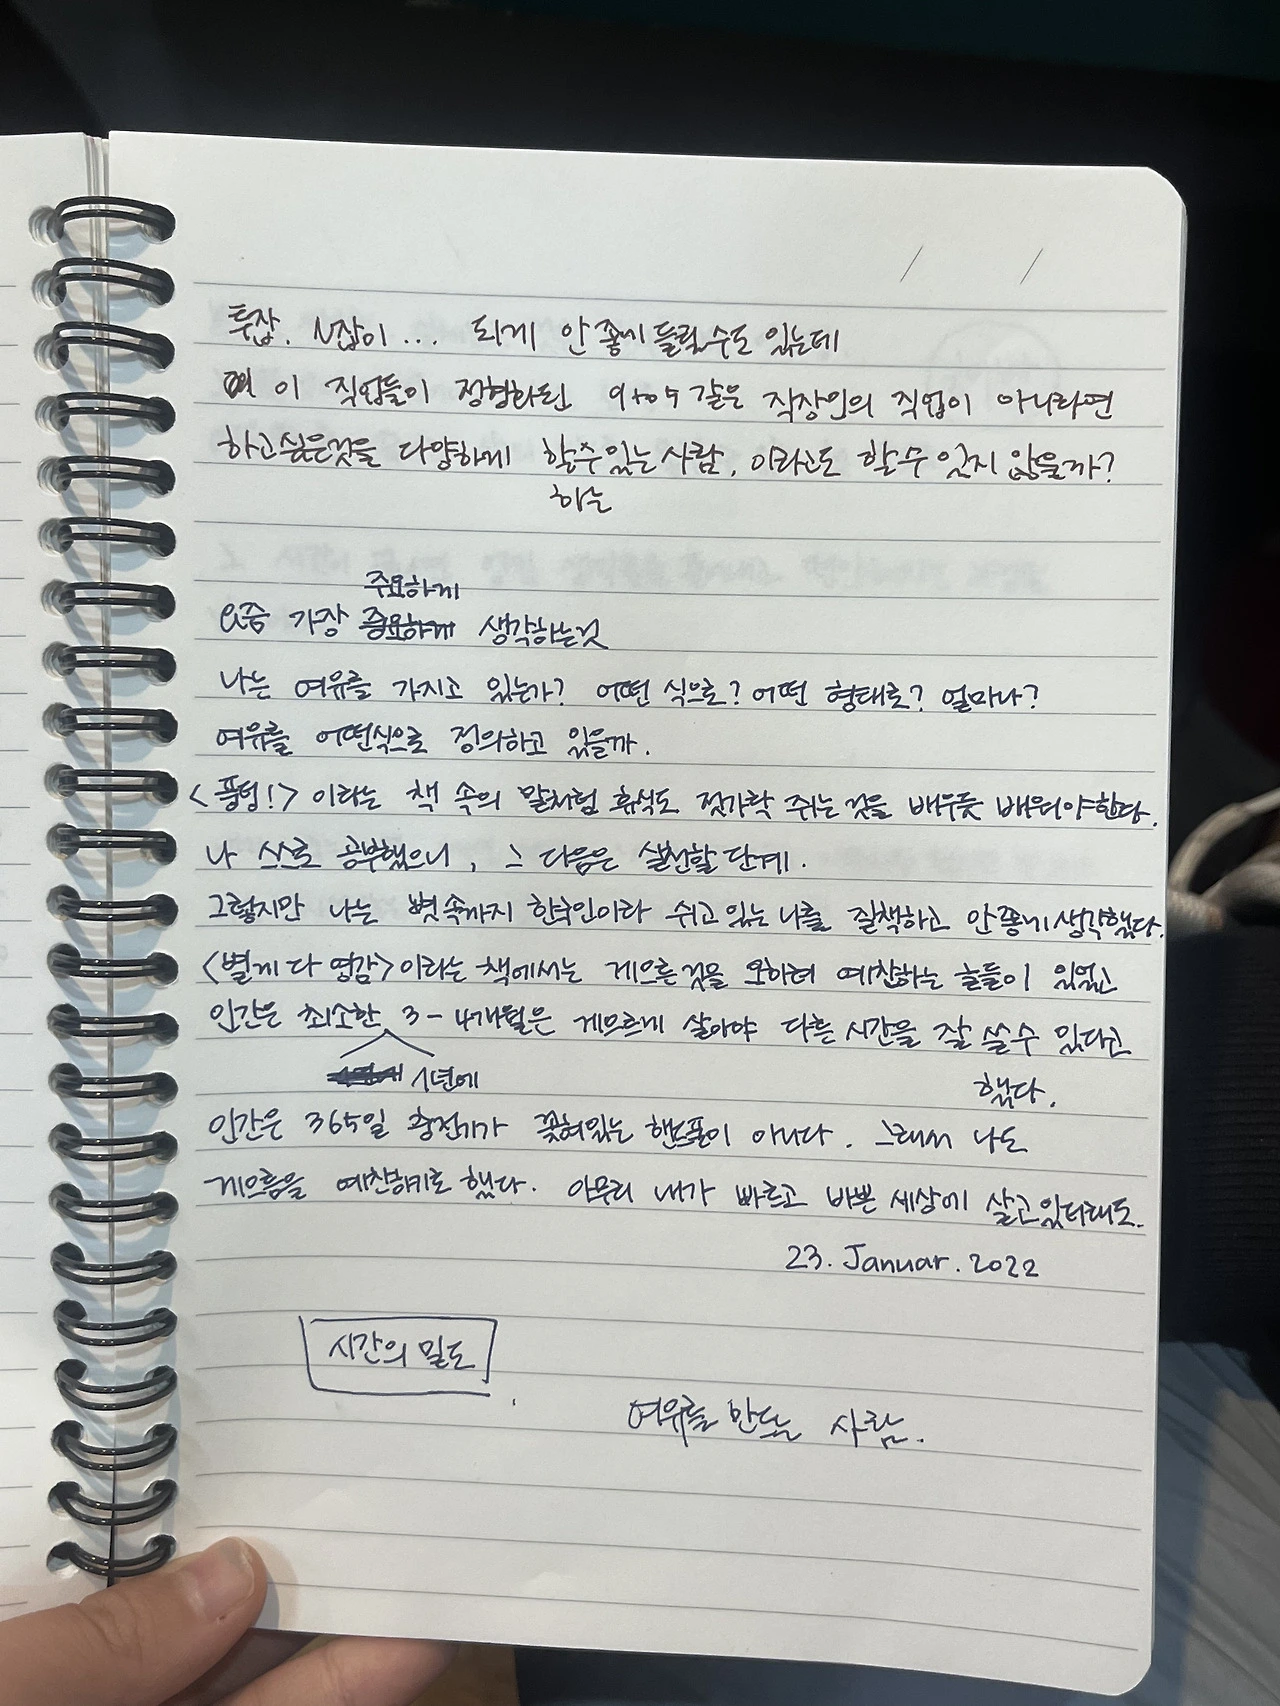 투잡. N잡이... 되게 안 좋게 들릴수도 있는데
이 직업들이 정형화된 9to5 같은 직장인의 직업이 아니라면
하고싶은것을 다양하게 할수있는 사람, 이라고도 할 수 있지 않을까?
하는
주요하게
요즘 가장 중요하게 생각하는것
나는 여유를 가지고 있는가? 어떤 식으로? 어떤 형태로? 얼마나?
여유를 어떤식으로 정의하고 있을까.
<풍덩!> 이라는 책 속의 말처럼 휴식도 젓가락 쥐는 것을 배우듯 배워야한다.
나 스스로 공부했으니, 그 다음은 실천할 단계.
그렇지만 나는 뼛속까지 한국인이라 쉬고있는 나를 질책하고 안좋게 생각했다.
<별게 다 영감> 이라는 책에서는 게으른것을 오히려 예찬하는 글들이 있었고
인간은 최소한 3-4개월은 게으르게 살아야 다른 시간을 잘 쓸 수 있다고
1년에 했다.
인간은 365일 충전기가 꽂혀있는 핸드폰이 아니다. 그래서 나도
게으름을 예찬하기로 했다. 아무리 내가 빠르고 바쁜 세상에 살고있더래도.
23. Januar. 2022
시간의 밀도
여유를 만드는 사람.